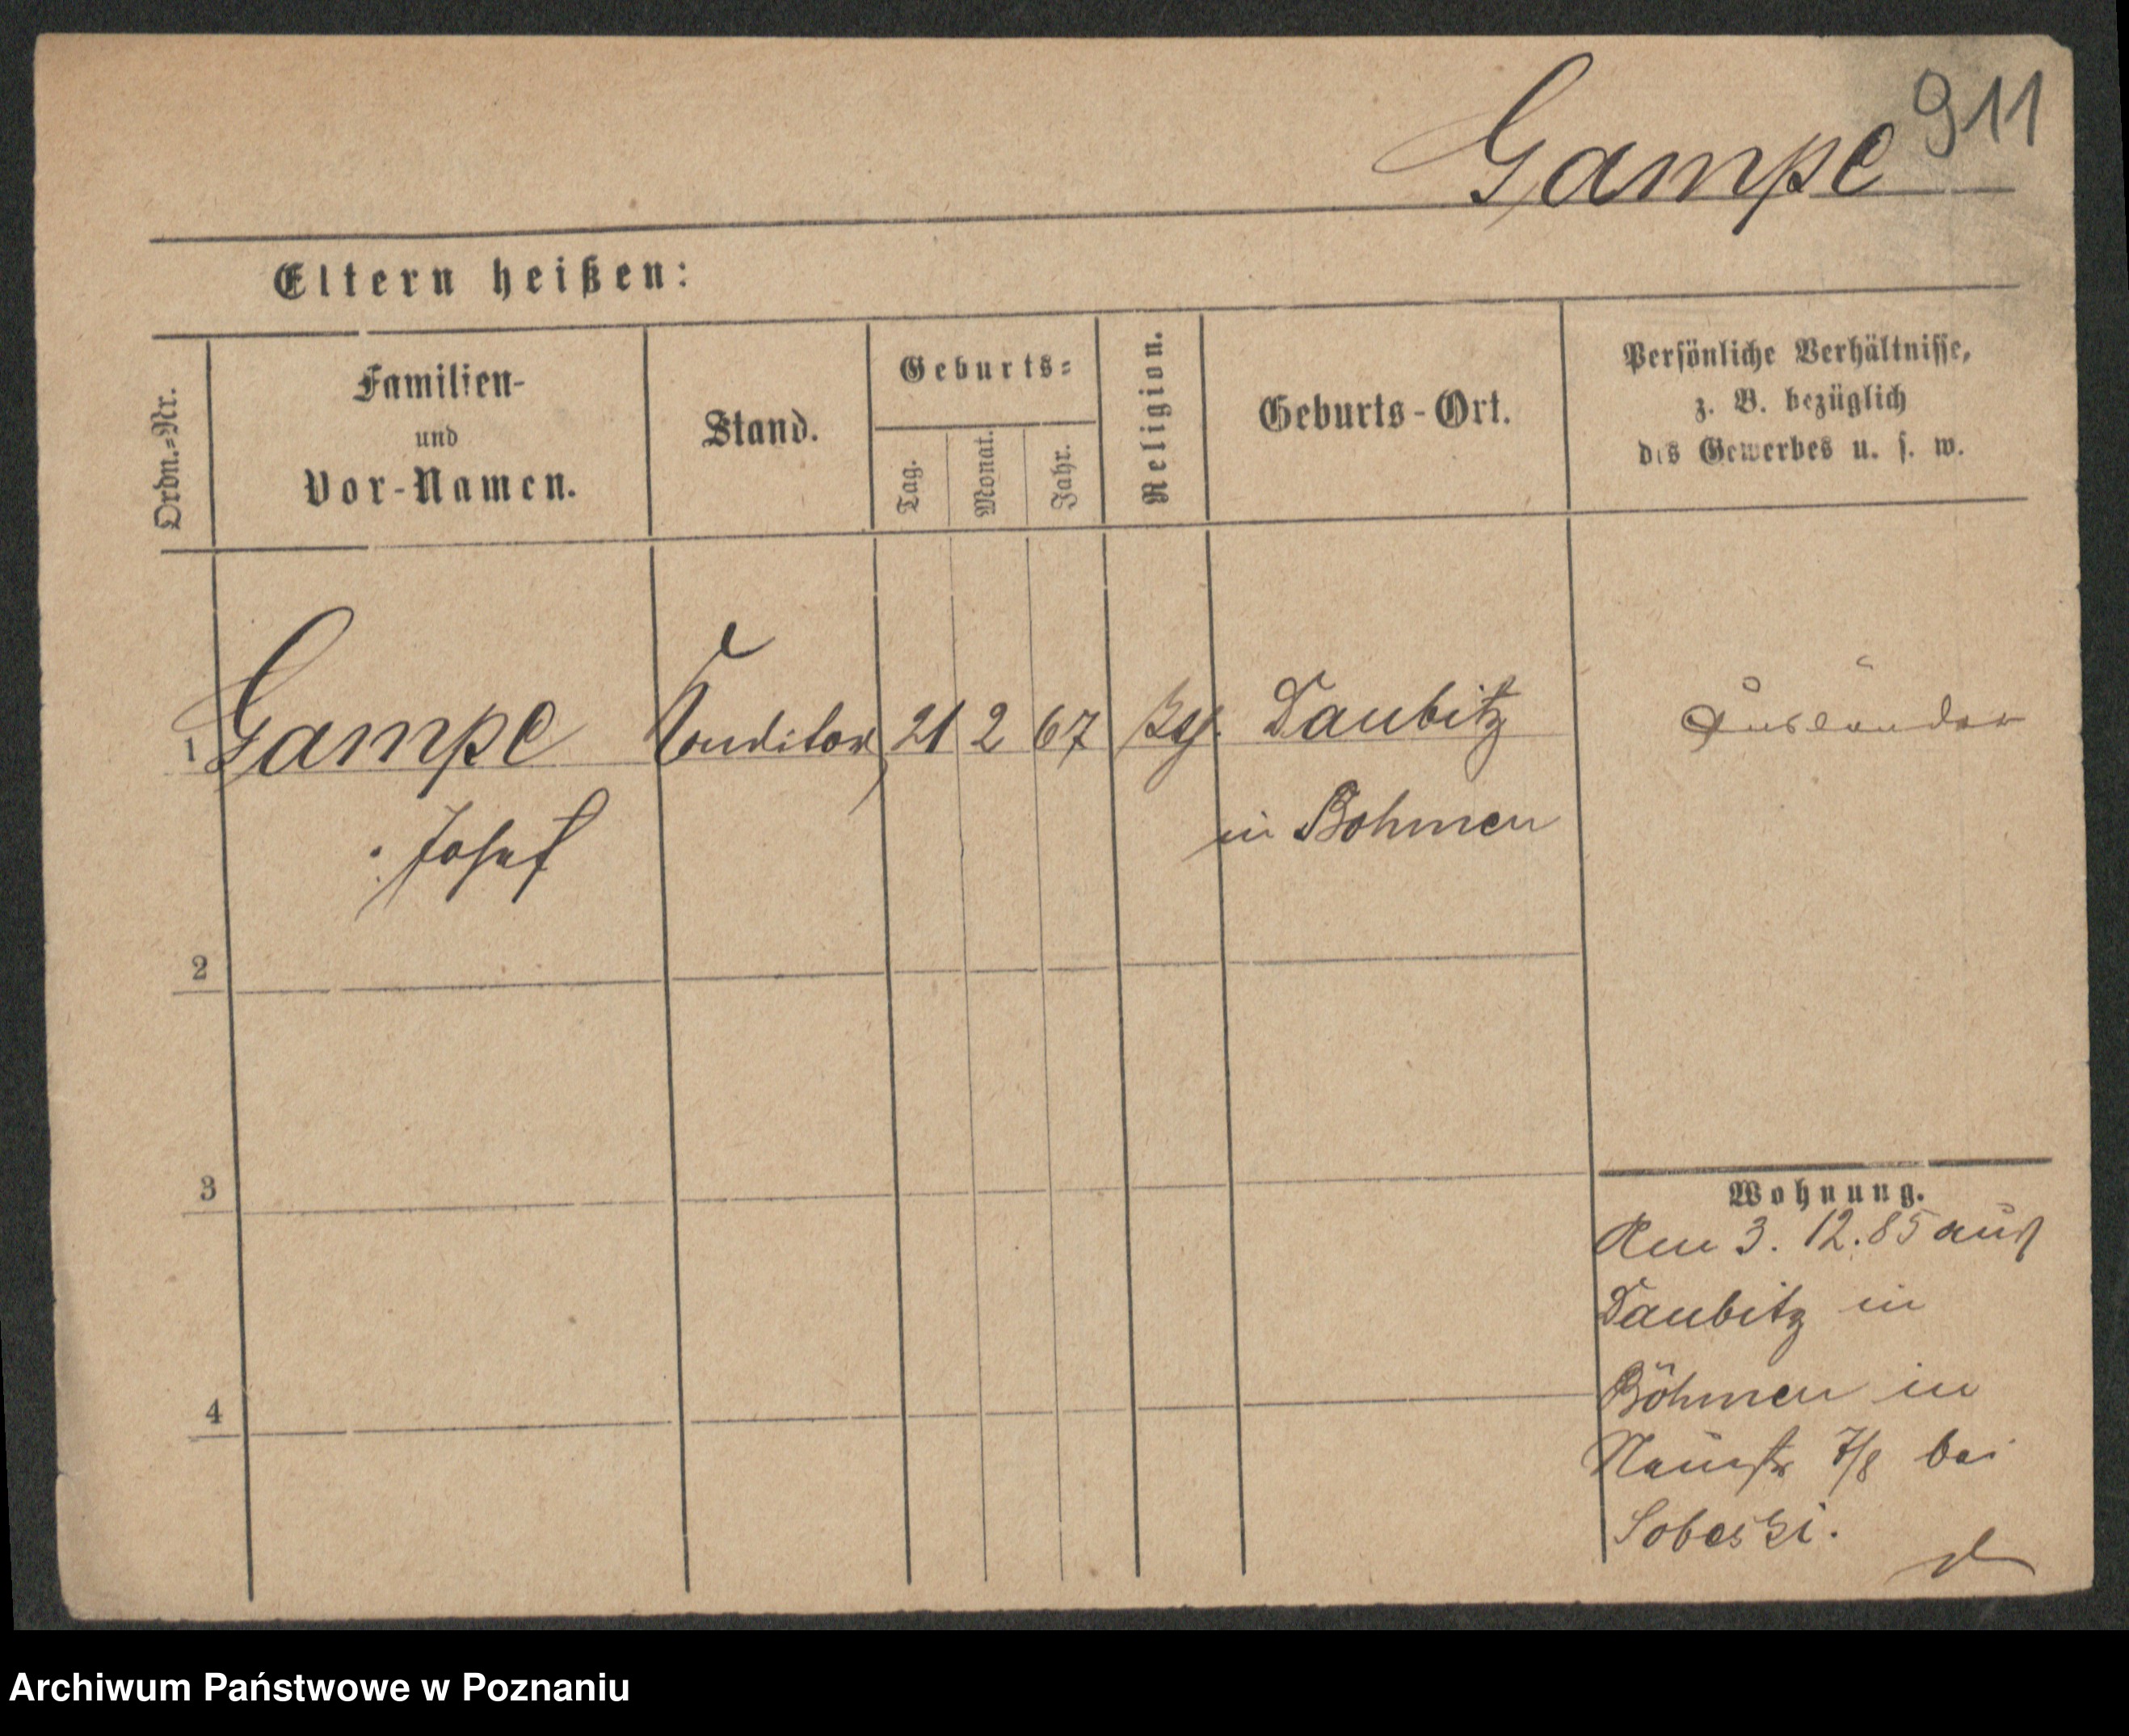 911
Gampe
Eltern heißen:
Ordn.=Nr.
Familien-
und
Vor-Namen.
Stand.
Geburts=
Tag.
Monat.
Jahr.
Religion.
Geburts-Ort.
Persönliche Verhältnisse,
z. B. bezüglich
des Gewerbes u. s. w.
1 Gampe Conditor, 21 2 67 Daubitz Ausländer
Josef in Bohmen
2
3
4
Wohnung.
Am 3. 12. 85 aus
Daubitz in
Böhmen in
Neuestr 7/8 bei
Sobeski.
Archiwum Państwowe w Poznaniu